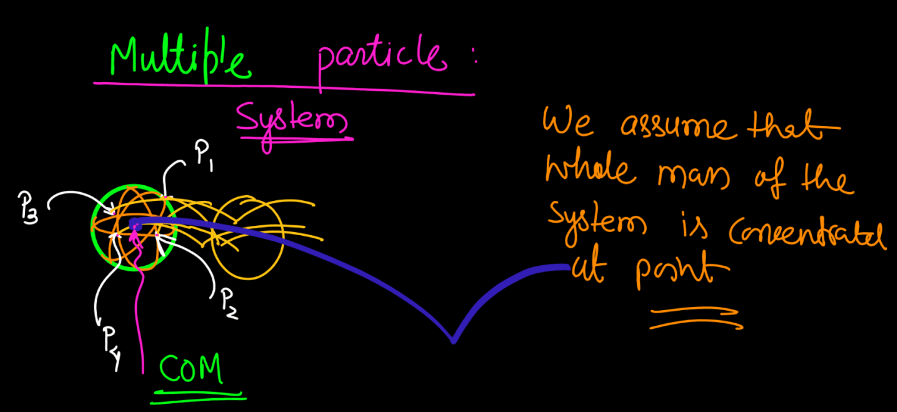 Multiple particle :
System
P1
P3
P2
P4
COM
We assume that
whole mass of the
system is concentrated
at point